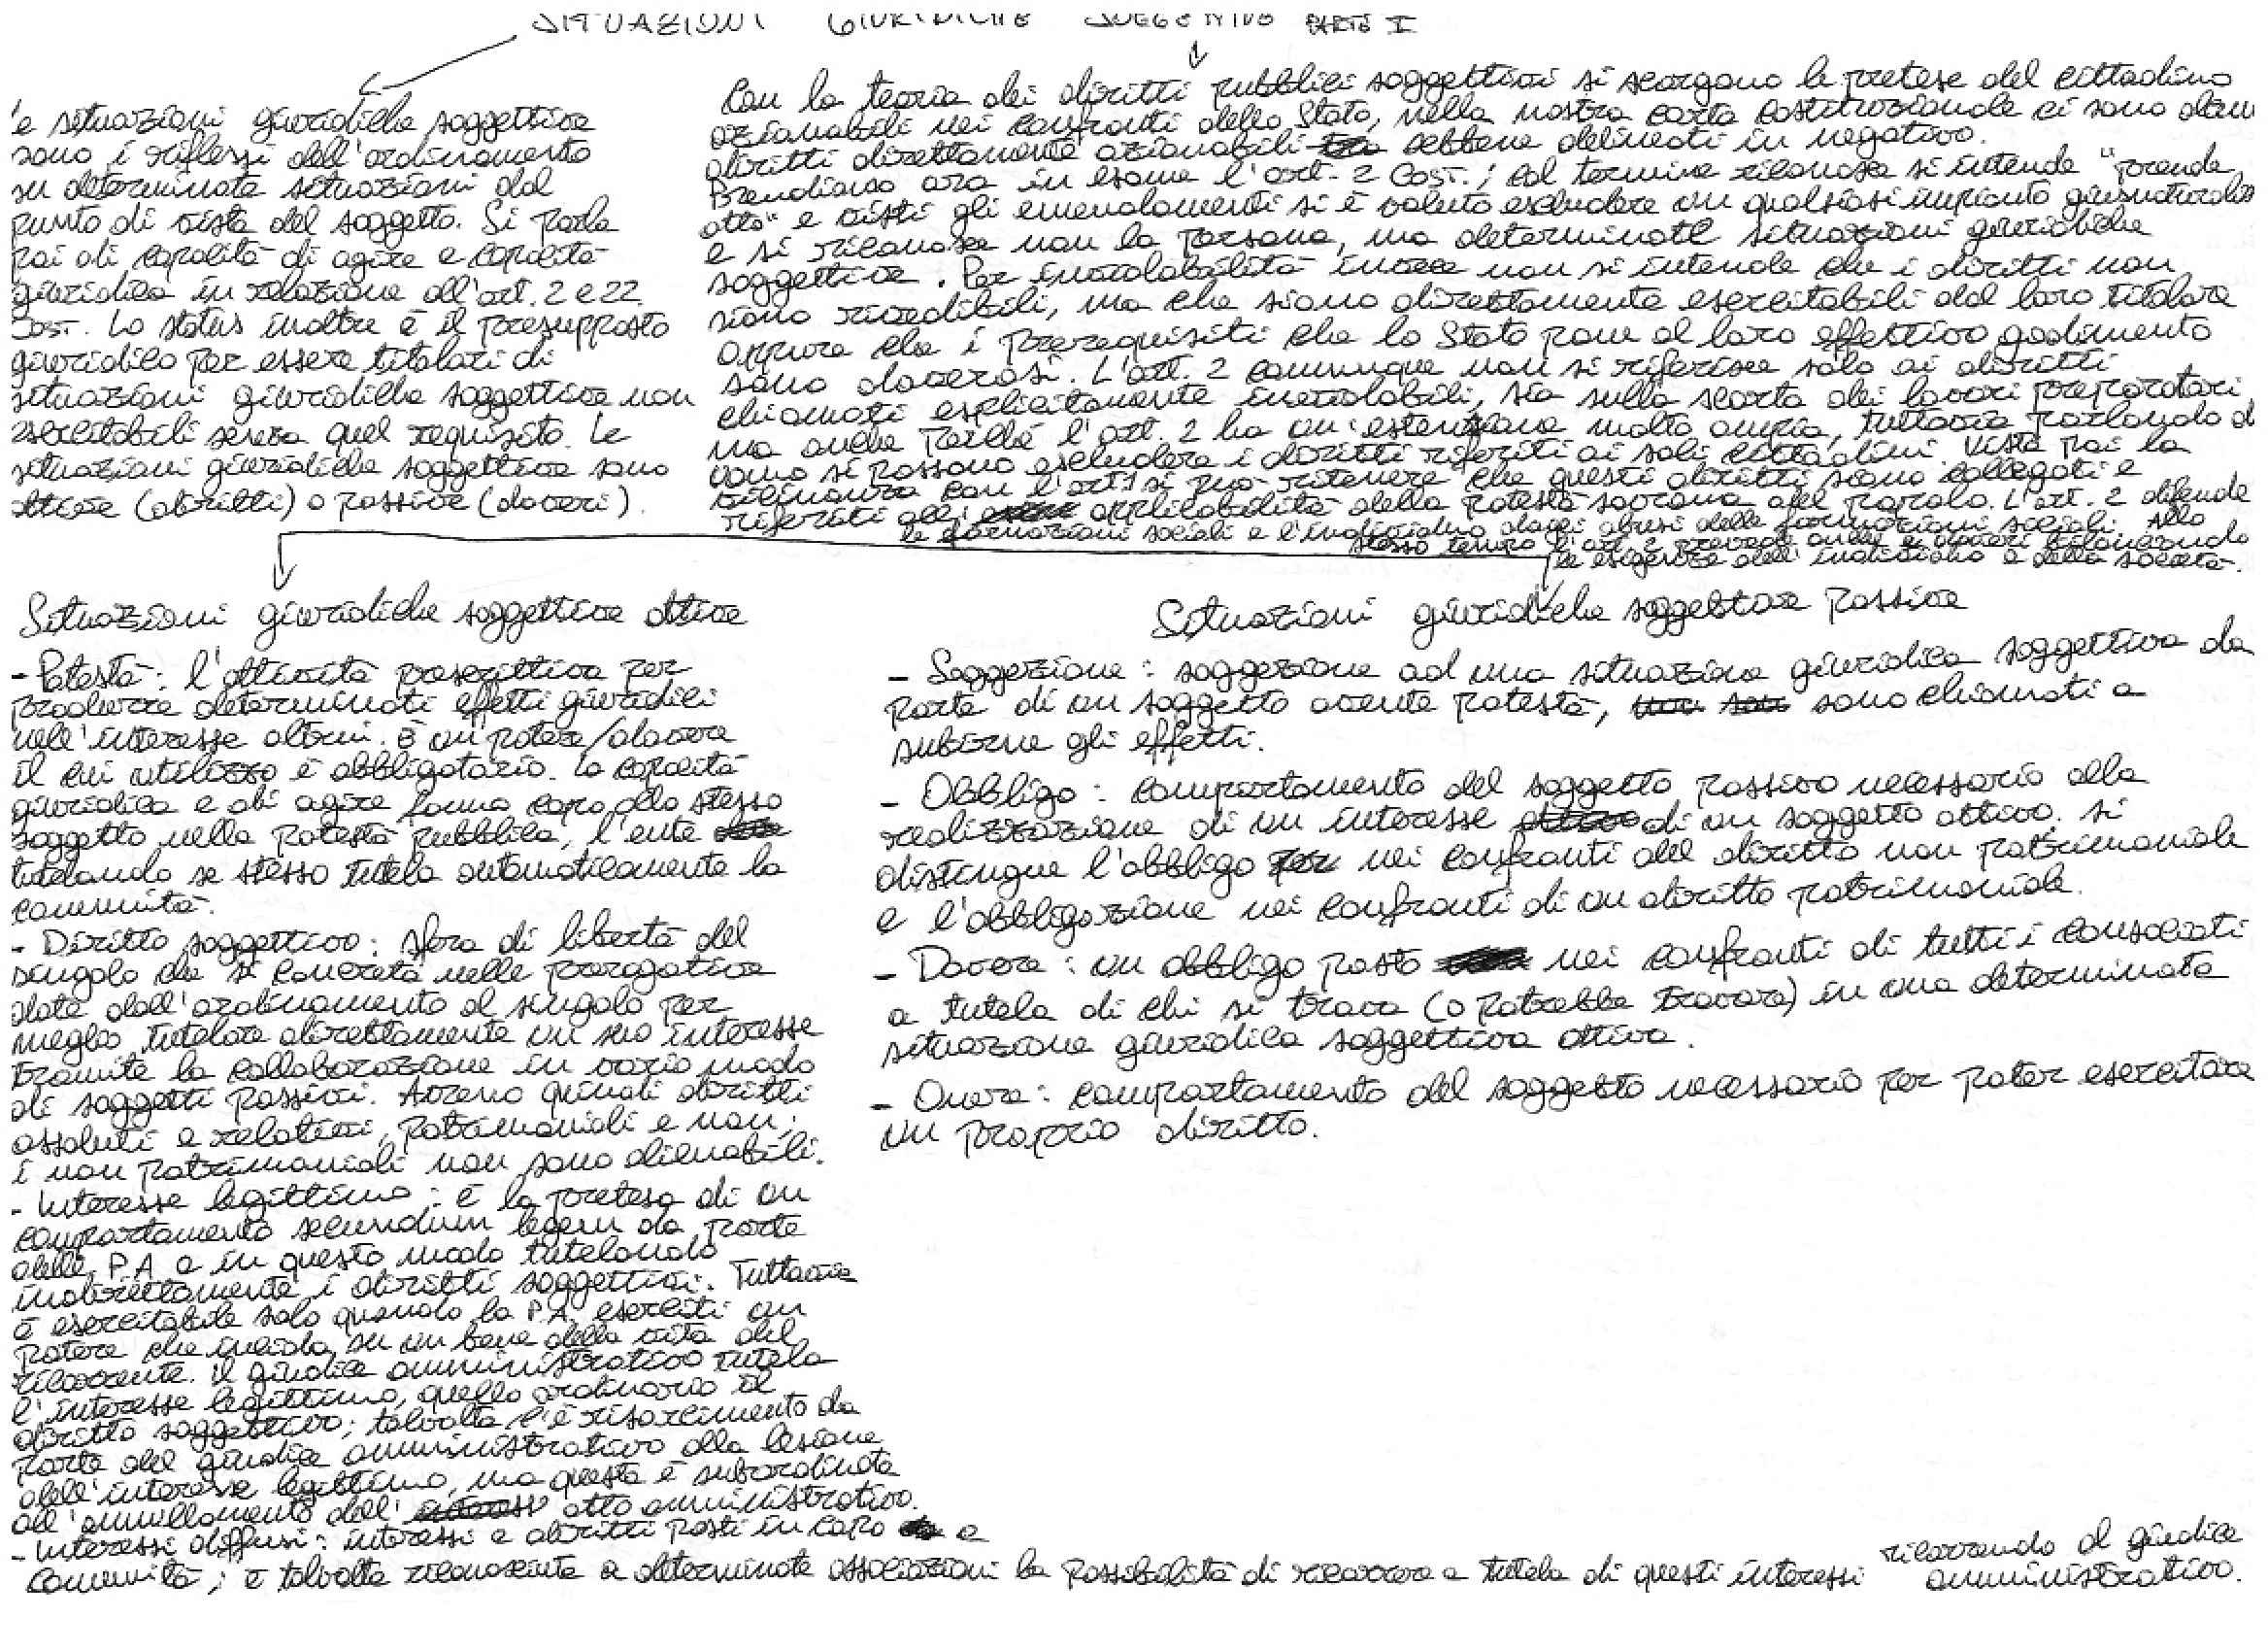 SITUAZIONI GIURIDICHE SOGGETTIVE PARTE I
Le situazioni giuridiche soggettive
sono i riflessi dell'ordinamento
su determinate situazioni dal
punto di vista del soggetto. Si parla
poi di capacità di agire e capacità
giuridica in relazione all'art. 2 e 22
Cost. Lo status inoltre è il presupposto
giuridico per essere titolari di
situazioni giuridiche soggettive non
esercitabili senza quel requisito. Le
situazioni giuridiche soggettive sono
attive (diritti) o passive (doveri).
Con la teoria dei diritti pubblici soggettivi si scorgono le pretese del cittadino
azionabili nei confronti dello Stato, nella nostra carta costituzionale ci sono alcuni
diritti direttamente azionabili sebbene delineati in negativo.
Prendiamo ora in esame l'art. 2 Cost.; col termine riconosce si intende "prende
atto" e visti gli emendamenti si è voluto escludere un qualsiasi impianto giusnaturalista
e si riconosce non la persona, ma determinate situazioni giuridiche
soggettive. Per inviolabilità invece non si intende che i diritti non
siano rivedibili, ma che siano direttamente esercitabili dal loro titolare
oppure che i prerequisiti che lo Stato pone al loro effettivo godimento
sono doverosi. L'art. 2 comunque non si riferisce solo ai diritti
chiamati esplicitamente inviolabili, sia sulla scorta dei lavori preparatori
ma anche poiché l'art. 2 ha un'estensione molto ampia, tuttavia parlando di
uomo si possono escludere i diritti riferiti ai soli cittadini. Vista poi la
vicinanza con l'art 1 si può ritenere che questi diritti siano collegati e
riferiti all' applicabilità della potestà sovrana del popolo. L'art. 2 difende
le formazioni sociali e l'individuo dagli abusi delle formazioni sociali. Allo
stesso tempo l'art. 2 prevede anche i doveri bilanciando
le esigenze dell'individuo e della società.
Situazioni giuridiche soggettive attive
- Potestà: l'attività prescrittiva per
produrre determinati effetti giuridici
nell'interesse altrui. È un potere/dovere
il cui utilizzo è obbligatorio. La capacità
giuridica e di agire fanno capo allo stesso
soggetto nella potestà pubblica, l'ente
tutelando se stesso tutela automaticamente la
comunità.
- Diritto soggettivo: sfera di libertà del
singolo che si concreta nelle prerogative
date dall'ordinamento al singolo per
meglio tutelare direttamente un suo interesse
tramite la collaborazione in vario modo
di soggetti passivi. Avremo quindi diritti
assoluti e relativi, patrimoniali e non;
i non patrimoniali non sono alienabili.
- Interesse legittimo: è la pretesa di un
comportamento secundum legem da parte
della P.A e in questo modo tutelando
indirettamente i diritti soggettivi. Tuttavia
è esercitabile solo quando la P.A. eserciti un
potere che incida su un bene della vita del
ricorrente. Il giudice amministrativo tutela
l'interesse legittimo, quello ordinario il
diritto soggettivo; talvolta c'è risarcimento da
parte del giudice amministrativo alla lesione
dell'interesse legittimo, ma questa è subordinata
all'annullamento dell' atto amministrativo.
- Interessi diffusi: interessi e diritti posti in capo a
comunità; è talvolta riconosciuta a determinate associazioni la possibilità di ricorrere a tutela di questi interessi ricorrendo al giudice
amministrativo.
Situazioni giuridiche soggettive passive
- Soggezione: soggezione ad una situazione giuridica soggettiva da
parte di un soggetto avente potestà, sono chiamati a
subirne gli effetti.
- Obbligo: comportamento del soggetto passivo necessario alla
realizzazione di un interesse di un soggetto attivo. Si
distingue l'obbligo nei confronti del diritto non patrimoniale
e l'obbligazione nei confronti di un diritto patrimoniale.
- Dovere: un obbligo posto nei confronti di tutti i consociati
a tutela di chi si trova (o potrebbe trovare) in una determinata
situazione giuridica soggettiva attiva.
- Onere: comportamento del soggetto necessario per poter esercitare
un proprio diritto.